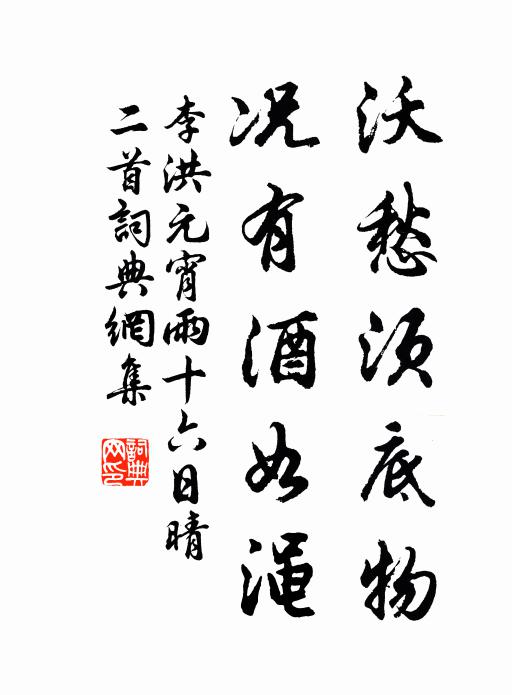 沃愁须底物
况有酒如渑
李洪元宵雨十六日晴
二首詞典網集
詞典
网印